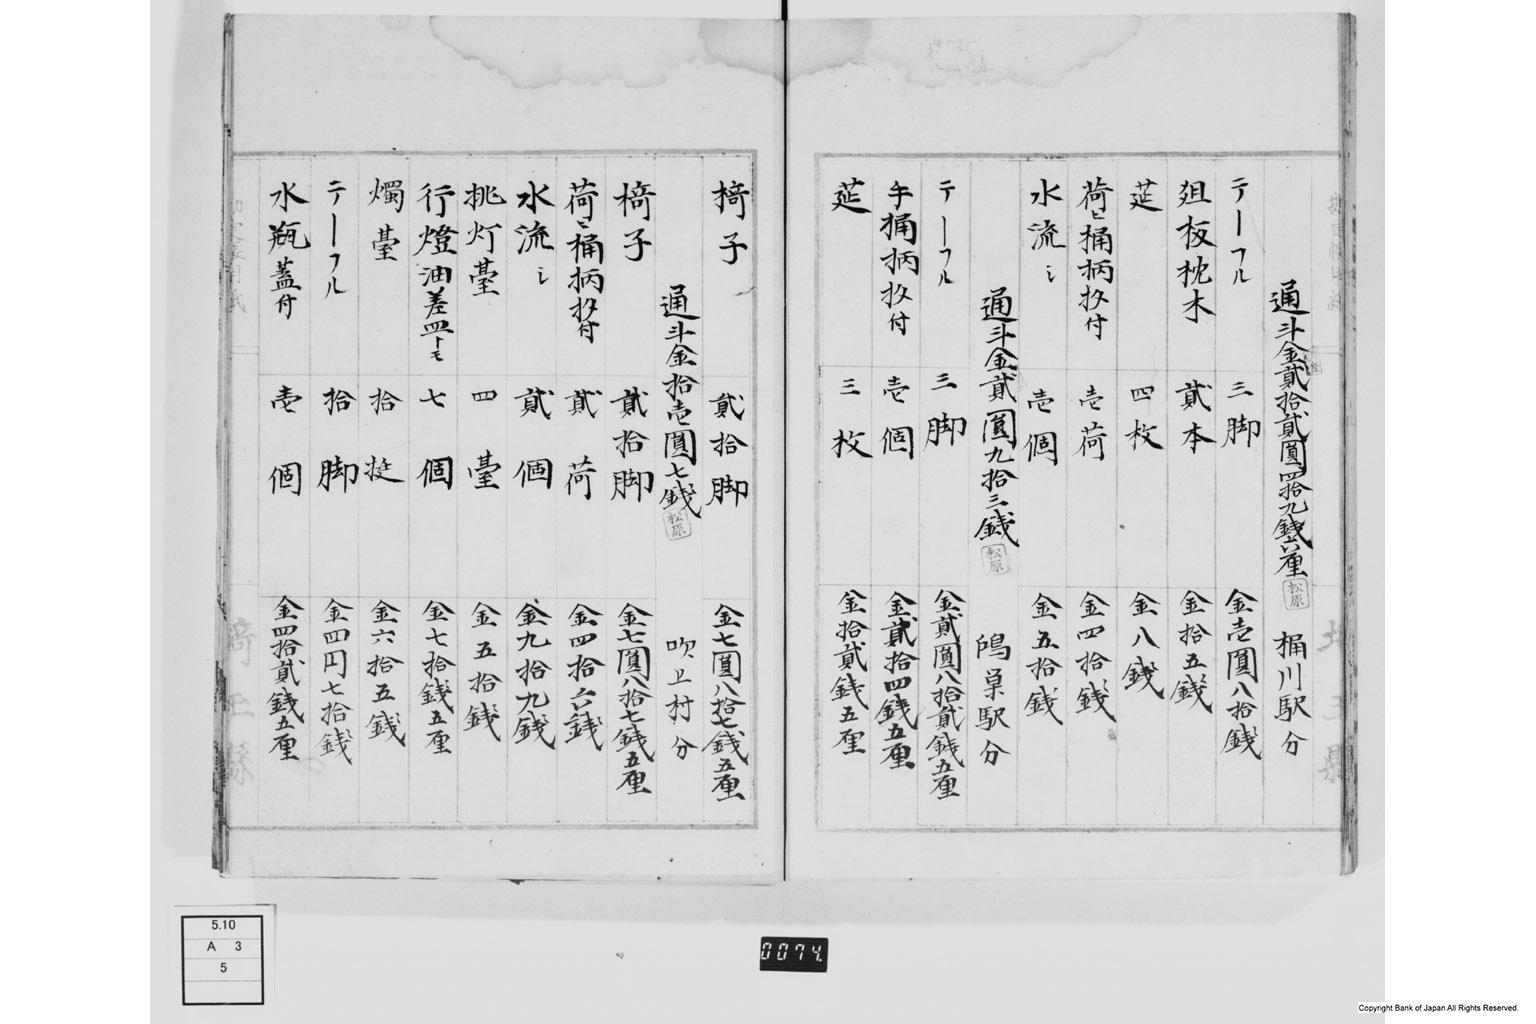 通斗金貳拾貳圓四拾九錢六厘 松原 桶川駅分
テーフル 三脚 金壱圓八拾錢
俎板枕木 貳本 金拾五錢
莚 四枚 金八錢
荷ヒ桶柄杓付 壱荷 金四拾錢
水流シ 壱個 金五拾錢
通斗金貳圓九拾三錢 松原 鴻巣駅分
テーフル 三脚 金貳圓八拾貳錢五厘
手桶柄杓付 壱個 金貳拾四錢五厘
莚 三枚 金拾貳錢五厘
椅子 貳拾脚 金七圓八拾七錢五厘
通斗金拾壱圓七錢 松原 吹上村分
椅子 貳拾脚 金七圓八拾七錢五厘
荷ヒ桶柄杓付 貳荷 金四拾六錢
水流シ 貳個 金九拾九錢
挑灯臺 四臺 金五拾錢
行燈油差皿トモ 七個 金七拾錢五厘
燭臺 拾挺 金六拾五錢
テーフル 拾脚 金四円七拾錢
水瓶蓋付 壱個 金四拾貳錢五厘
5.10
A 3
5
0074.
Copyright Bank of Japan All Rights Reserved.